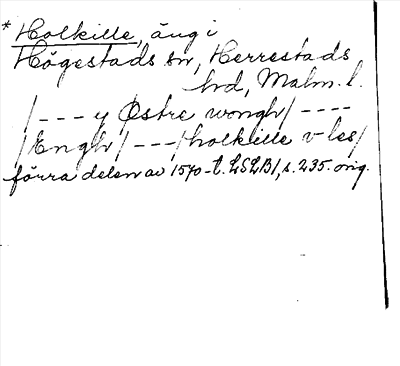 * Holkille, äng i
Högestads sn, Herrestads
hrd, Malm. l.
/--- y Østre wongh/ ----
/Engh/ --- /holkille v les/
förra delen av 1570-t. LSLB1, s. 235. orig.